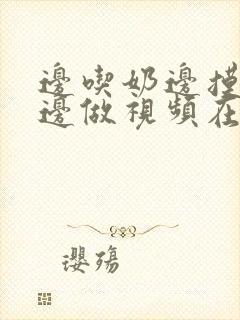 邊喫奶邊摸
邊做視頻在
瓔殤